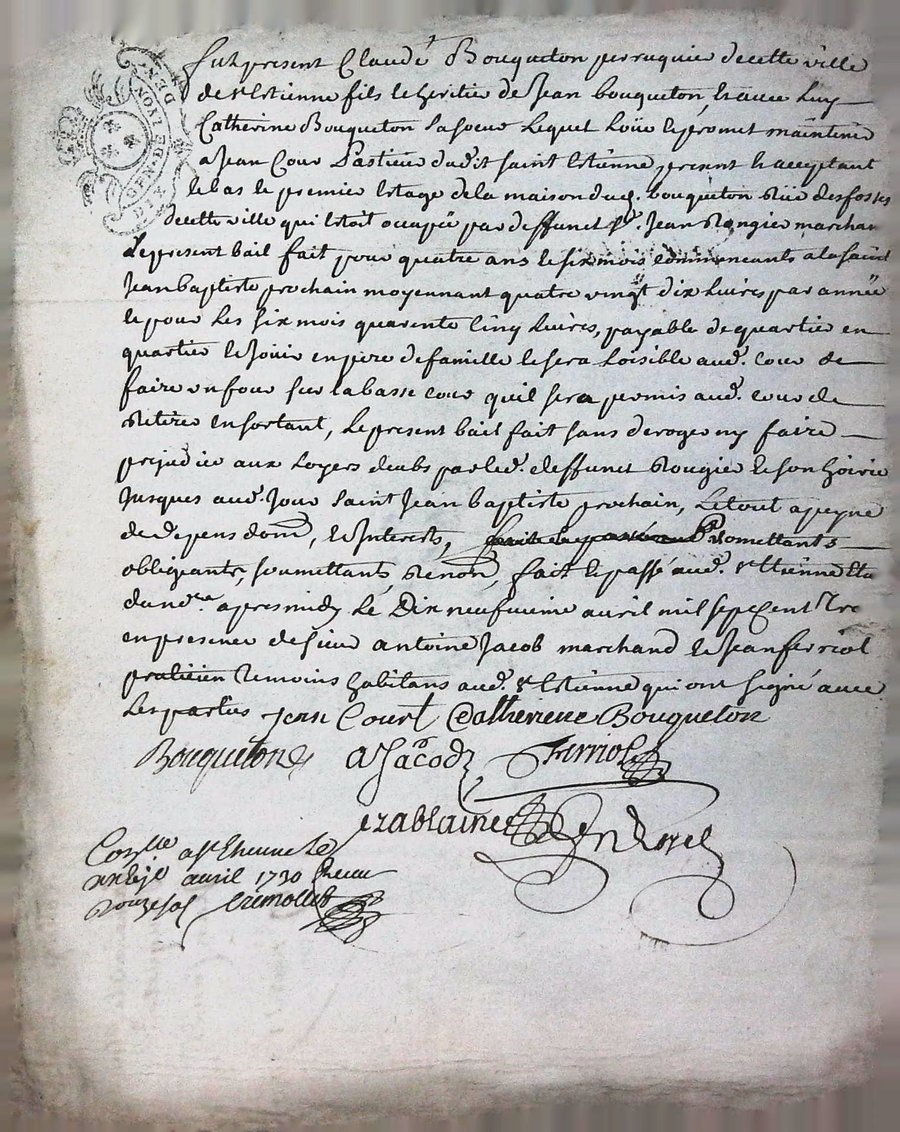 GEN DE LYON
Fut present Claude Bouqueton perruquie de cette ville
de st Estienne fils et heritie de Jean bouqueton, et avec luy
Catherine Bouqueton sa soeur lequel loüe et promet maintenir
a Jean Cour Pastieu dudit saint Estienne, present et acceptant
le bas et premier estage de la maison dud. bouqueton Rüe des fosses
de cette ville qui estoit occupée par deffunct Sr. Jean Rongier marchan
Le present bail fait pour quatre ans et six mois commencants a la saint
Jean baptiste prochain moyennant quatre vingt dix Livres par année
et pour Les six mois quarente Cinq Livres, payable de quartier en
quartier et Jouir en pere de famille et sera Loisible aud. Cour de
faire un four sur la basse cour quil sera permis aud. cour de
Retirer en sortant, Le present bail fait sans deroger ny faire
prejudice aux Loyers deubs par led. deffunct Rougier et son hoirie
Jusques aud. Jour Saint Jean baptiste prochain, Le tout a peyne
de depens dom, et Interests, Promettants
obligeants, soumettants, Renon, fait et passé aud. st Etienne
apres midy Le Dix neufvieme avril mil sept Cent tre
en presence de sieur antoine Jacob marchand et Jean ferriol
praticien temoins habitans aud. st Estienne qui ont signé avec
Les parties Jean Court Catherine Bouqueton
Bouqueton A Jacod Ferriol
ezablaine
Con lle a st Etienne le
avril 1730 Receu
douze sol Tremollet